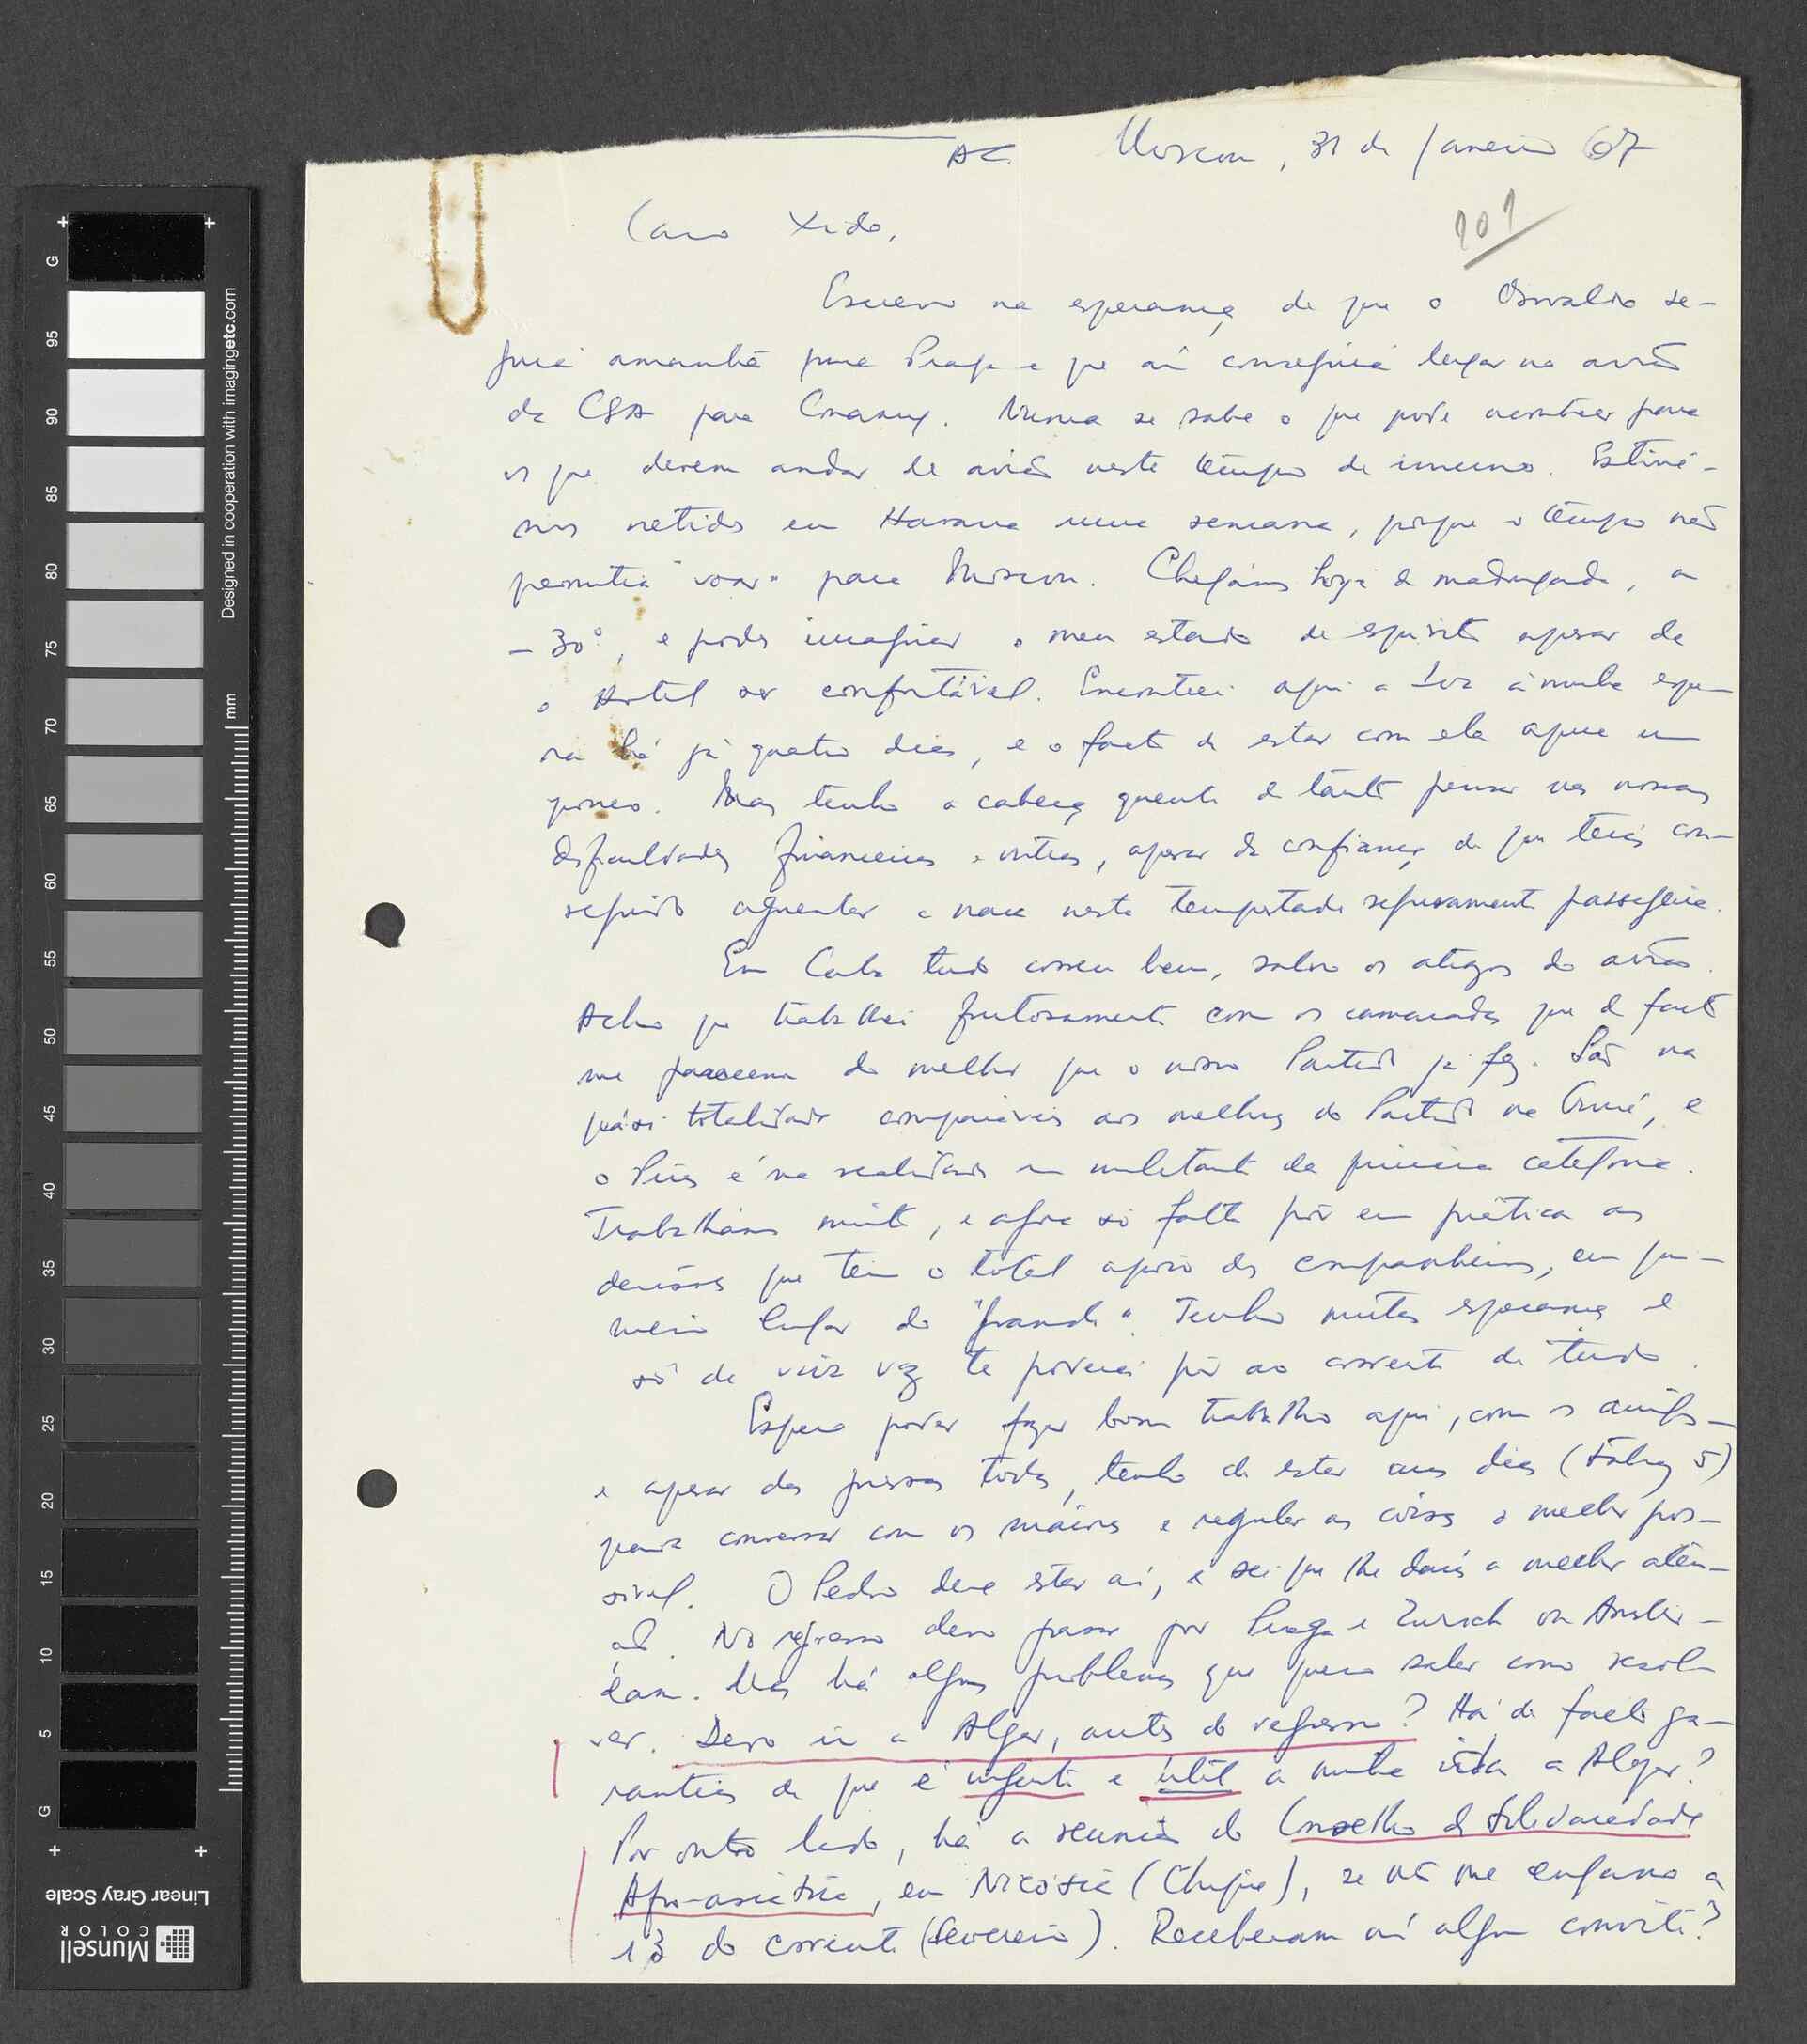 AC
Moscou, 31 de Janeiro 67
101
Caro Xido,
Escrevo na esperança de que o Osvaldo se-
guirá amanhã para Praga e que aí conseguirá lugar no avião
da CSA para Conacry. Nunca se sabe o que pode acontecer para
os que devem andar de avião neste tempo de inverno. Estive-
mos retidos em Havana uma semana, porque o tempo não
permitia "voar" para Moscou. Chegámos hoje de madrugada, a
-30°, e podes imaginar o meu estado de espírito apesar de
o Hotel ser confortável. Encontrei aqui a à minha espe-
ra há já quatro dias, e o facto de estar com ela ajuda um
pouco. Mas tenho a cabeça quente de tanto pensar nas nossas
dificuldades financeiras e outras, apesar da confiança de que terás con-
seguido aguentar a nave nesta tempestade seguramente passageira.
Em Cuba tudo correu bem, salvo os atrazos do avião.
Acho que trabalhei frutuosamente com os camaradas que de facto
me parecem do melhor que o nosso Partido já fez. São na
quási totalidade comparáveis aos melhores do Partido na Guiné, e
o Pires é na realidade um militante da primeira categoria.
Trabalhámos muito, e agora só falta pôr em prática as
decisões que tem o total apoio dos companheiros, em pri-
meiro lugar do "grande". Tenho muitas esperanças e
só de viva voz te poderei pôr ao corrente de tudo.
Espero poder fazer bom trabalho aqui, com os amigos
e apesar das pressas todas, tenho de estar uns dias (talvez 5)
para conversar com os maiores e regular as coisas o melhor pos-
sivel. O Pedro deve estar aí, e sei que lhe darás a melhor aten-
ção. No regresso devo passar por Praga e Zurich ou Amster-
dam. Mas há alguns problemas que quero saber como resol-
ver. Devo ir a Alger, antes do regresso? Há de facto ga-
rantias de que é urgente e útil a minha ida a Alger?
Por outro lado, há a reunião do Conselho de Solidariedade
Afro-asiática, em Nicósia (Chipre), se não me engano a
13 do corrente (Fevereiro). Receberam aí algum convite?
Designed in cooperation with imagingetc.com
mm
G
95
90
85
80
75
70
65
60
55
50
45
40
35
30
25
20
15
10
5
G
Linear Gray Scale
Munsell
COLOR